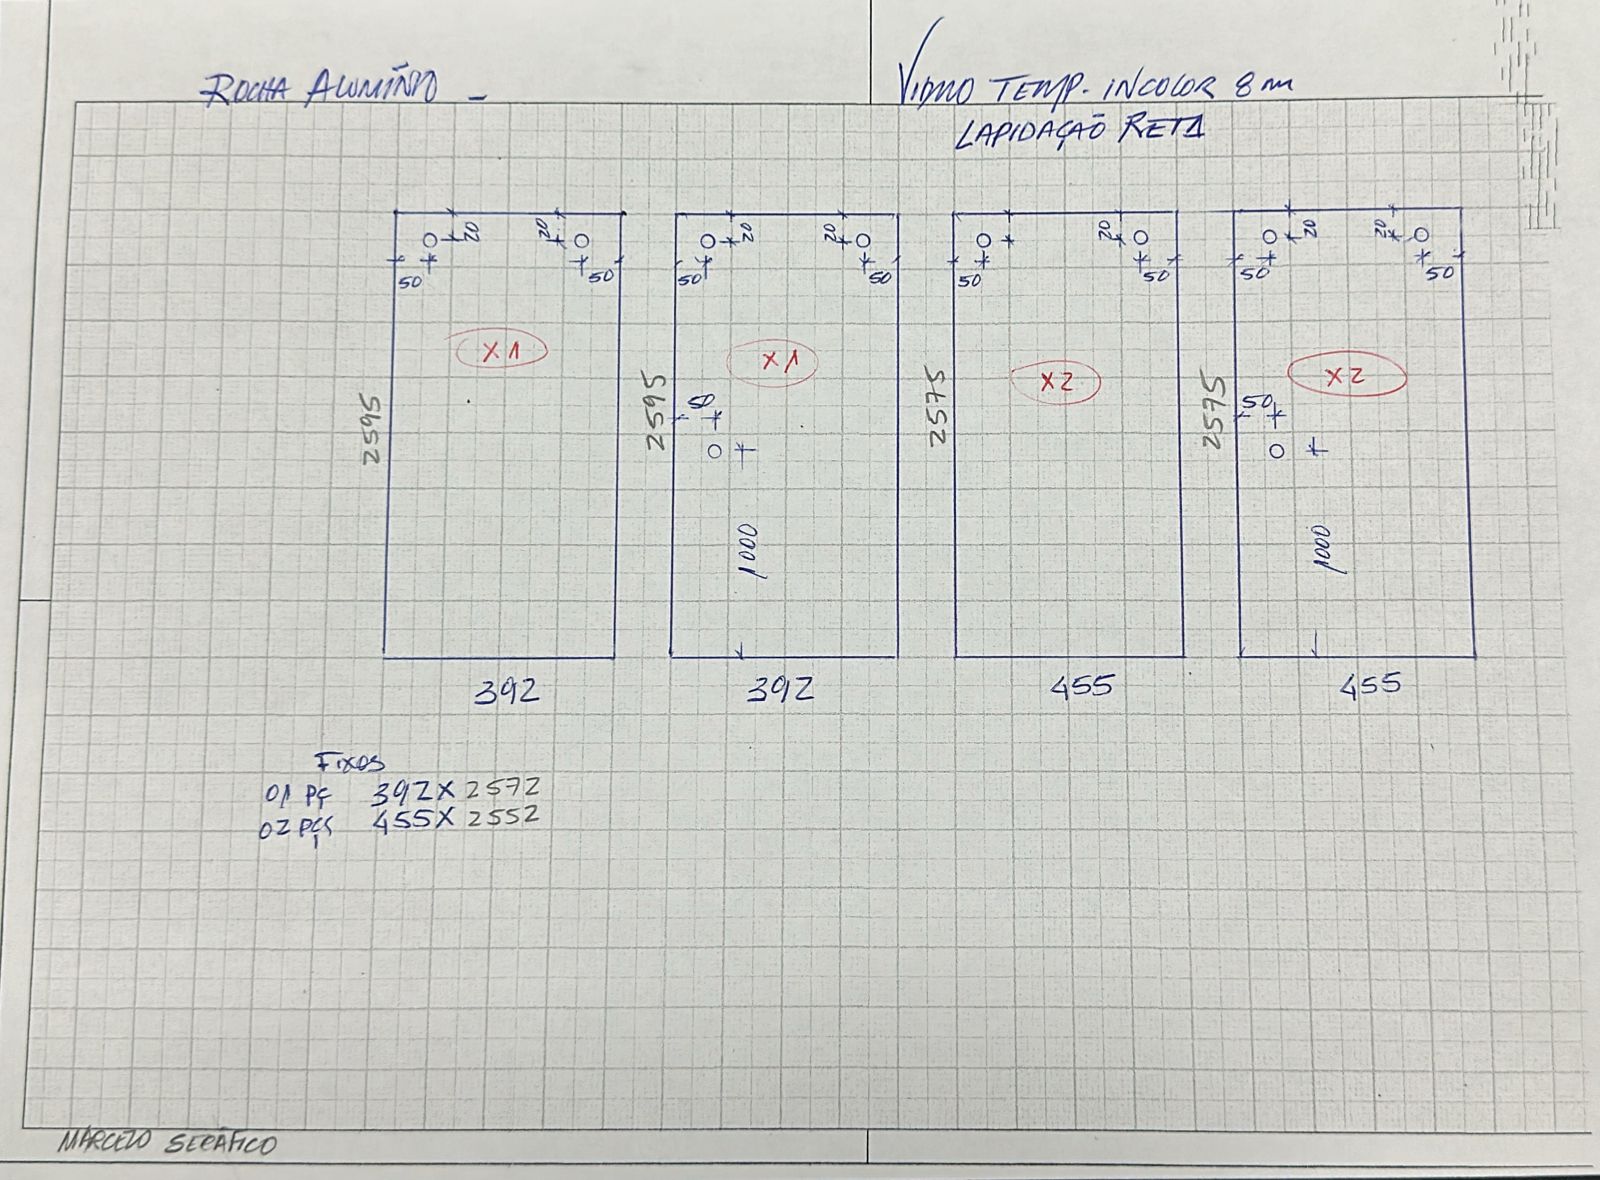 ROCHA ALUMÍNIO -
VIDRO TEMP. INCOLOR 8mm
LAPIDAÇÃO RETA
20 20
50 50
X1
2595
392
20 20
50 50
X1
2595
50
1000
392
20
50 50
X2
2575
455
20 20
50 50
X2
2575
50
1000
455
Fixos
01 PÇ 392X2572
02 PÇS 455X2552
MARCELO SERÁFICO